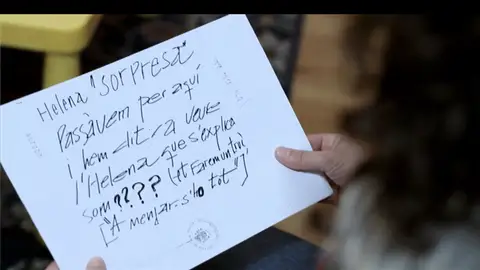 Helena "sorpresa"
Passàvem per aquí
i hem dit ra veure
l'Helena que s'explica
som???? (
["A menjar-s'ho tot"]